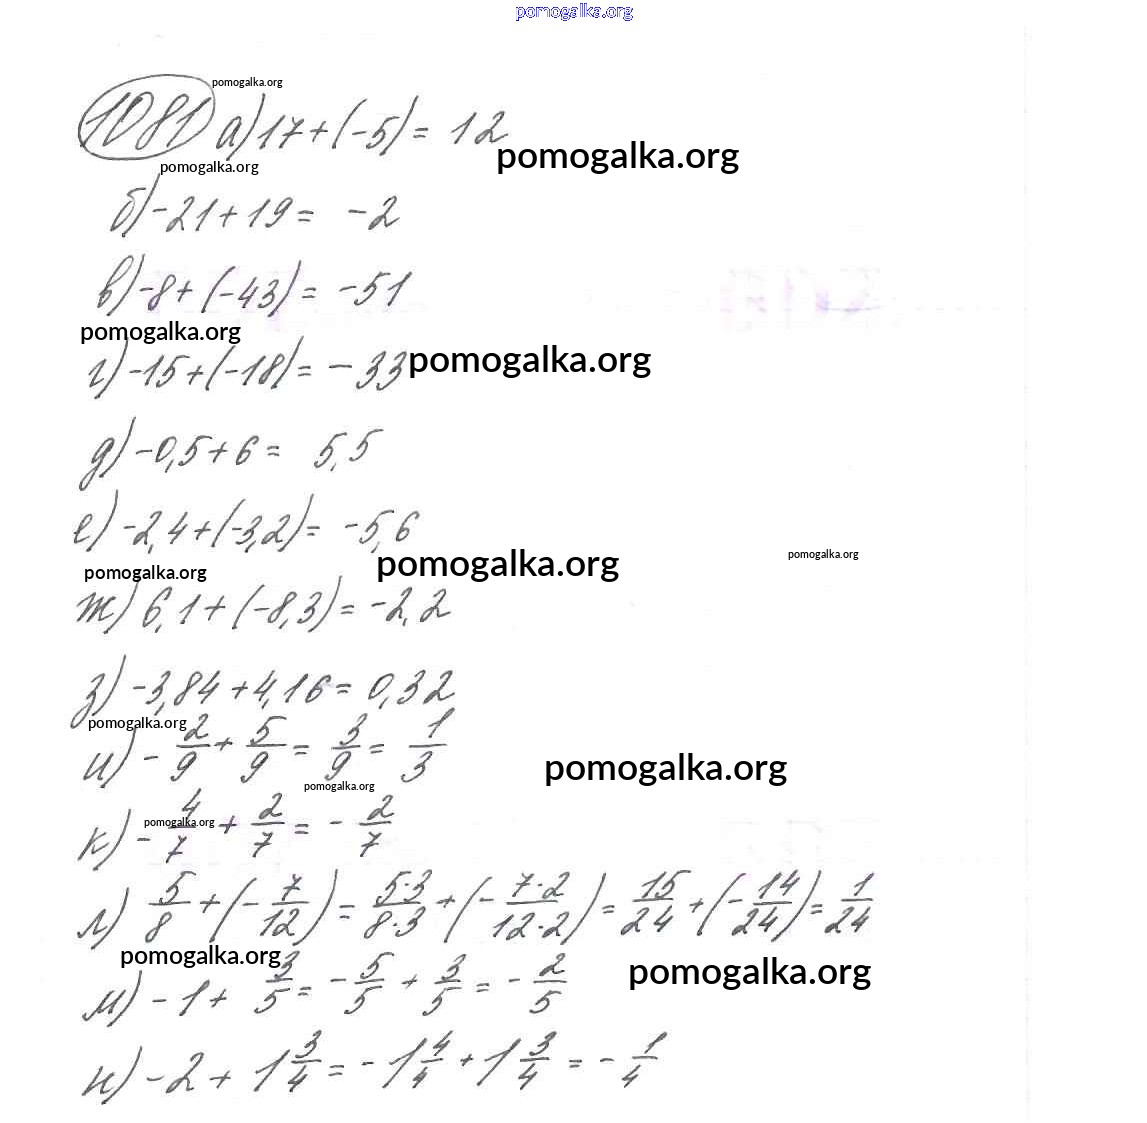 pomogalka.org
pomogalka.org
1081 а) 17 + (-5) = 12
pomogalka.org
pomogalka.org
б) -21 + 19 = -2
в) -8 + (-43) = -51
pomogalka.org
г) -15 + (-18) = -33
pomogalka.org
д) -0,5 + 6 = 5,5
е) -2,4 + (-3,2) = -5,6
pomogalka.org
pomogalka.org
pomogalka.org
ж) 6,1 + (-8,3) = -2,2
з) -3,84 + 4,16 = 0,32
pomogalka.org
и) -2/9 + 5/9 = 3/9 = 1/3
pomogalka.org
pomogalka.org
к) -4/7 + 2/7 = -2/7
pomogalka.org
л) 5/8 + (-7/12) = 5·3/8·3 + (-7·2/12·2) = 15/24 + (-14/24) = 1/24
pomogalka.org
pomogalka.org
м) -1 + 3/5 = -5/5 + 3/5 = -2/5
н) -2 + 1 3/4 = -1 4/4 + 1 3/4 = -1/4